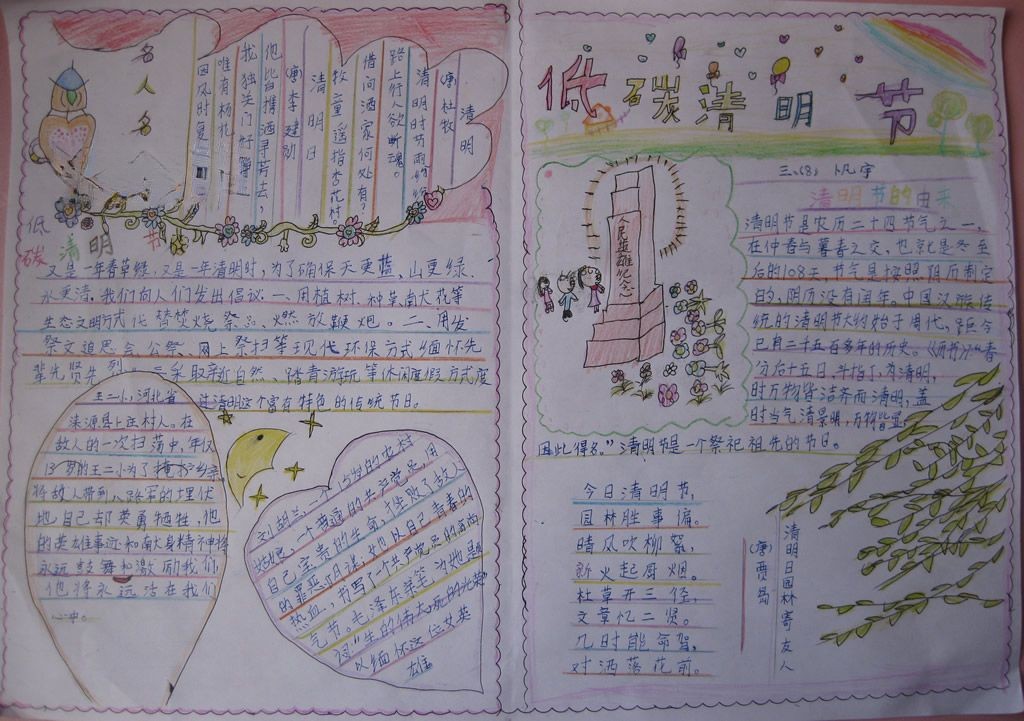 名人名
清明
(唐)杜牧
清明时节雨纷纷,
路上行人欲断魂。
借问酒家何处有,
牧童遥指杏花村
清明日
(唐)李建勋
他皆携酒寻芳去,
我独关门好静
唯有杨花
因风时复
低碳清明节
又是一年春草绿,又是一年清明时,为了确保天更蓝、山更绿、
水更清,我们向人们发出倡议:一、用植树、种草、南犬花等
生态文明方式代替焚烧祭品、燃放鞭炮。二、用发
祭文追思会、公祭、网上祭扫等现代环保方式缅怀先
辈先贤先烈。三采取亲近自然、踏青游玩等休闲度假方式度
过清明这个富有特色的传统节日。
王二小,河北省
涞源县上庄村人。在
敌人的一次扫荡中,年仅
13岁的王二小为了掩护乡亲,
将敌人带到八路军的埋伏
地自己却英勇牺牲,他
的英雄事迹和南大身精神将
永远鼓舞和激励我们,
他将永远活在我们
心中。
刘胡兰,一个15岁的农村
姑娘,一个普通的共产党员,用
自己宝贵的生命,挫败了敌人
的罪恶阴谋,她以自己青春的
热血,书写了一个共产党员的高尚
气节。毛泽东亲笔为她题
词:“生的伟大,死的光荣”
以缅怀这位女英
雄
低碳清明节
三、(8) 卜凡宇
清明节的由来
人民英雄纪念
清明节是农历二十四节气之一,
在仲春与暮春之交,也就是冬至
后的108天。节气是按照阳历制定
的,阴历没有闰年。中国汉族传
统的清明节大约始于周代,距今
已有二十五百多年的历史。《历书》:“春
分后十五日,斗指丁,为清明,
时万物皆洁齐而清明,盖
时当气清景明,万物皆显,
因此得名。”清明节是一个祭祀祖先的节日。
今日清明节,
园林胜事偏。
晴风吹柳絮,
新火起厨烟。
杜草开三径,
文章忆二贤。
几时能命驾,
对酒落花前。
(唐)贾岛
清明日园林寄友人